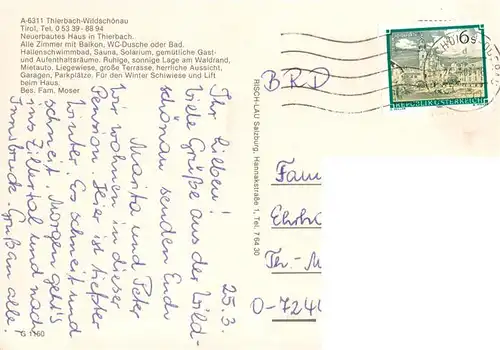 A-6311 Thierbach-Wildschönau
Tirol, Tel. 0 53 39 - 86 94
Neuerbautes Haus in Thierbach.
Alle Zimmer mit Balkon, WC-Dusche oder Bad.
Hallenschwimmbad, Sauna, Solarium, gemütliche Gast-
und Aufenthaltsräume. Ruhige, sonnige Lage am Waldrand,
Mietauto, Liegewiese, große Terrasse, herrliche Aussicht,
Garagen, Parkplätze. Für den Winter Schiwiese und Lift
beim Haus.
Bes. Fam. Moser
25.3.
Ihr Lieben!
Viele Grüße aus der Wild-
schönau senden Euch
Marita und Peter
Wir wohnen in dieser
Pension. Hier ist tiefster
Winter. Es schneit und
schneit. Morgen geht's
ins Zillertal und nach
Innsbruck. Gruß an alle.
G 1160
RISCH-LAU Salzburg, Hannakstraße 1, Tel. 7 64 30
6
REPUBLIK ÖSTERREICH
BRD
Fam
Ehrb
Th.-M
O-724